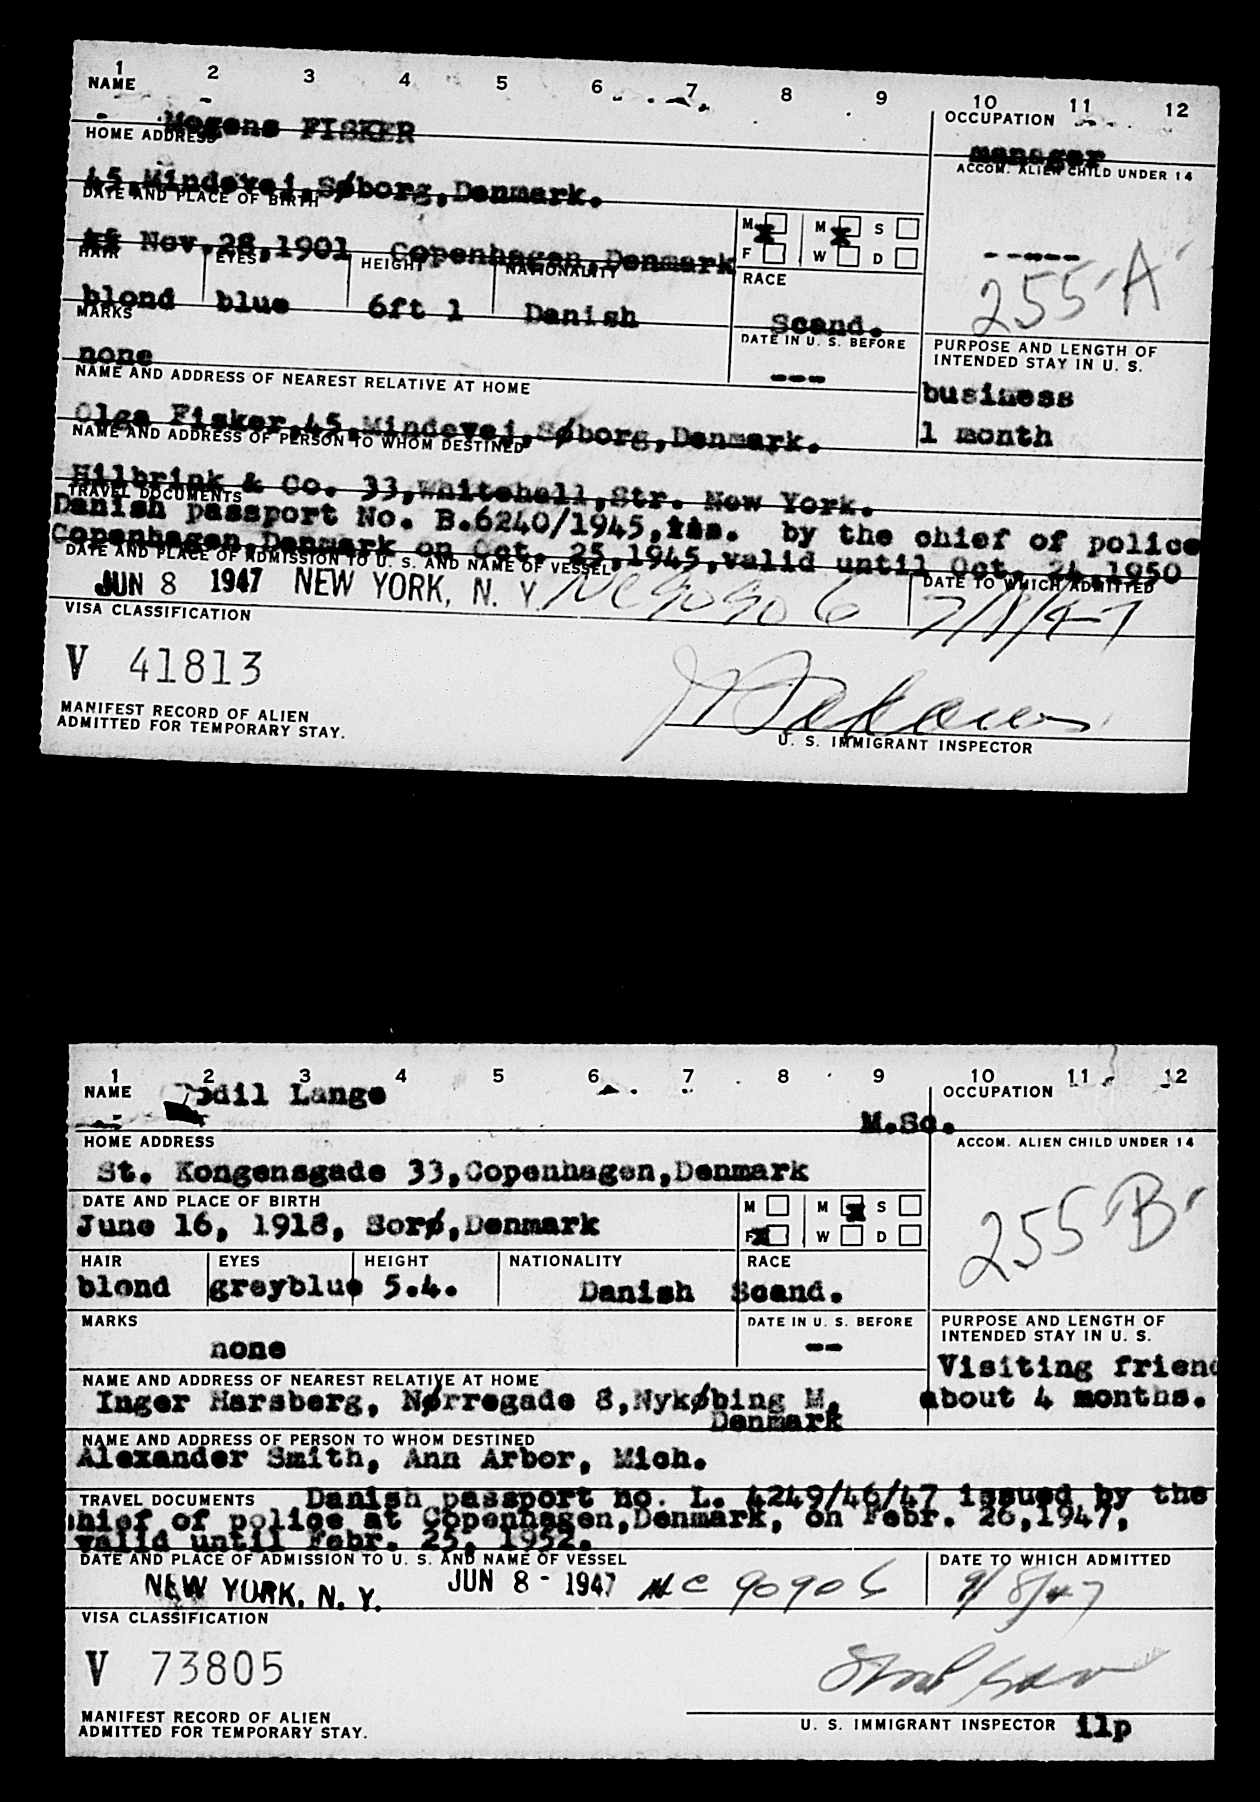 1 2 3 4 5 6 7 8 9 10 11 12
NAME
OCCUPATION
Mogens FISKER
manager
HOME ADDRESS
ACCOM. ALIEN CHILD UNDER 14
45,Mindevej,Søborg,Denmark.
DATE AND PLACE OF BIRTH
M M S
F W D
Nov.28,1901 Copenhagen,Denmark
-----
255 "A"
HAIR EYES HEIGHT NATIONALITY RACE
blond blue 6ft 1 Danish Scand.
MARKS
DATE IN U. S. BEFORE
PURPOSE AND LENGTH OF
INTENDED STAY IN U. S.
none
---
business
1 month
NAME AND ADDRESS OF NEAREST RELATIVE AT HOME
Olga Fisker,45,Mindevej,Søborg,Denmark.
NAME AND ADDRESS OF PERSON TO WHOM DESTINED
Hilbrink & Co. 33,Whitehall,Str. New York.
TRAVEL DOCUMENTS
Danish passport No. B.6240/1945,iss. by the chief of police
Copenhagen Denmark on Oct. 25,1945,valid until Oct. 24,1950
DATE AND PLACE OF ADMISSION TO U. S. AND NAME OF VESSEL
DATE TO WHICH ADMITTED
JUN 8 1947 NEW YORK, N. Y. NC90906 7/8/47
VISA CLASSIFICATION
V 41813
MANIFEST RECORD OF ALIEN
ADMITTED FOR TEMPORARY STAY.
U. S. IMMIGRANT INSPECTOR
1 2 3 4 5 6 7 8 9 10 11 12
NAME
OCCUPATION
Bodil Lange
M.Sc.
HOME ADDRESS
ACCOM. ALIEN CHILD UNDER 14
St. Kongensgade 33,Copenhagen,Denmark
DATE AND PLACE OF BIRTH
M M S
F W D
June 16, 1918, Sorø,Denmark
255 "B"
HAIR EYES HEIGHT NATIONALITY RACE
blond greyblue 5.4. Danish Scand.
MARKS
DATE IN U. S. BEFORE
PURPOSE AND LENGTH OF
INTENDED STAY IN U. S.
none
--
Visiting friend
about 4 months.
NAME AND ADDRESS OF NEAREST RELATIVE AT HOME
Inger Marsberg, Nørregade 8,Nykøbing M.
Denmark
NAME AND ADDRESS OF PERSON TO WHOM DESTINED
Alexander Smith, Ann Arbor, Mich.
TRAVEL DOCUMENTS Danish passport no. L. 4249/46/47 issued by the
chief of police at Copenhagen,Denmark, on Febr. 26,1947,
valid until Febr. 25, 1952.
DATE AND PLACE OF ADMISSION TO U. S. AND NAME OF VESSEL
DATE TO WHICH ADMITTED
NEW YORK, N. Y. JUN 8 - 1947 NC 90906 9/8/47
VISA CLASSIFICATION
V 73805
MANIFEST RECORD OF ALIEN
ADMITTED FOR TEMPORARY STAY.
U. S. IMMIGRANT INSPECTOR ilp